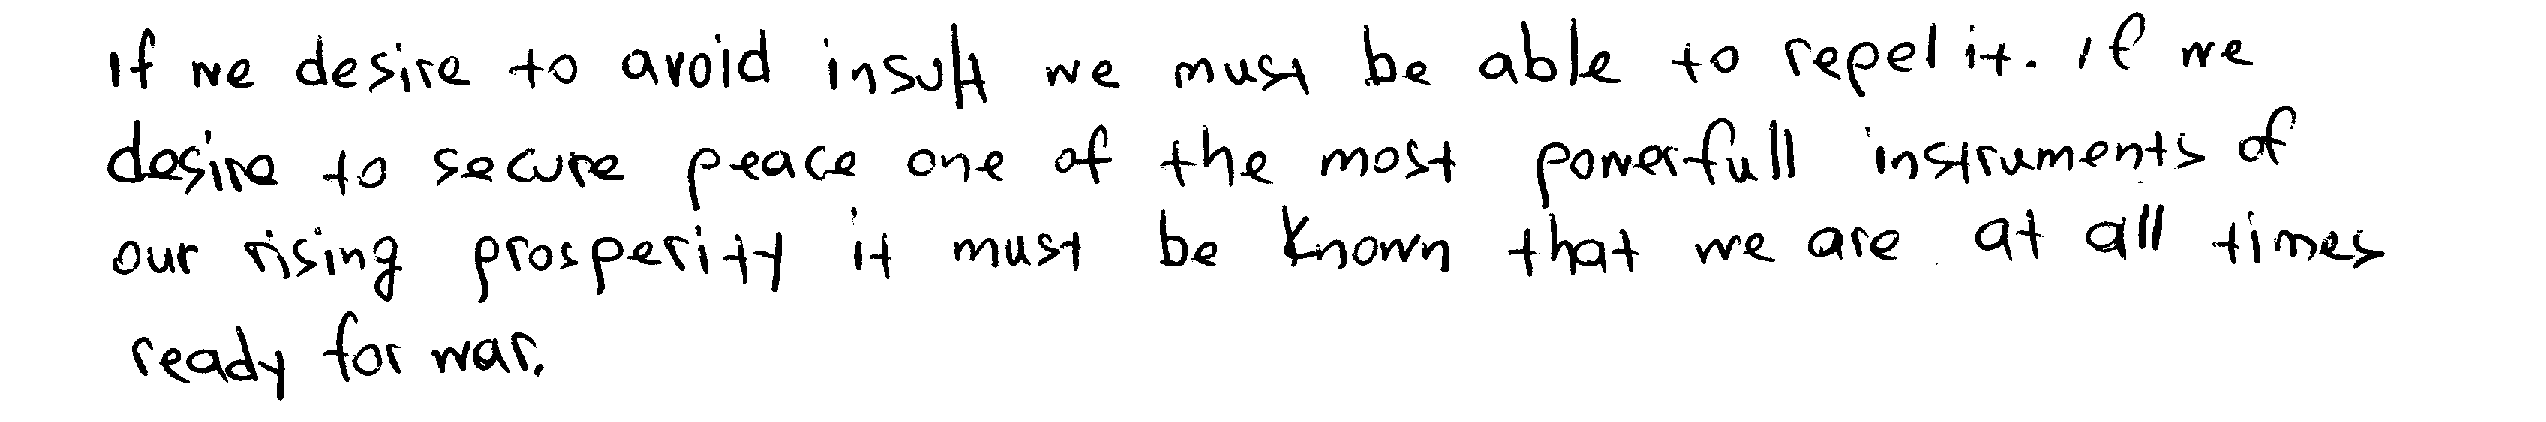 If we desire to avoid insult we must be able to repel it. If we
desire to secure peace one of the most powerfull instruments of
our rising prosperity it must be known that we are at all times
ready for war.